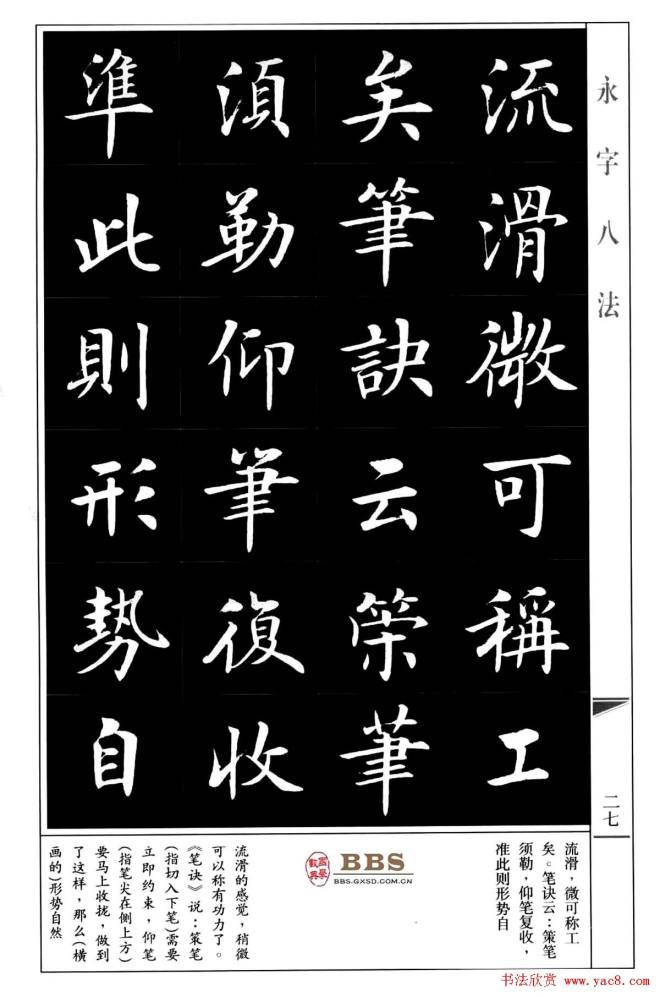 永字八法
流滑微可稱工
矣筆訣云策筆
須勒仰筆復收
準此則形勢自
二七
流滑，微可称工
矣。笔诀云：策笔
须勒，仰笔复收，
准此则形势自
BBS
BBS.GXSD.COM.CN
流滑的感觉，稍微
可以称有功力了。
《笔诀》说：策笔
(指切入下笔)需要
立即约束，仰笔
(指笔尖在侧上方)
要马上收拢，做到
了这样，那么(横
画的)形势自然
书法欣赏 www.yac8.com